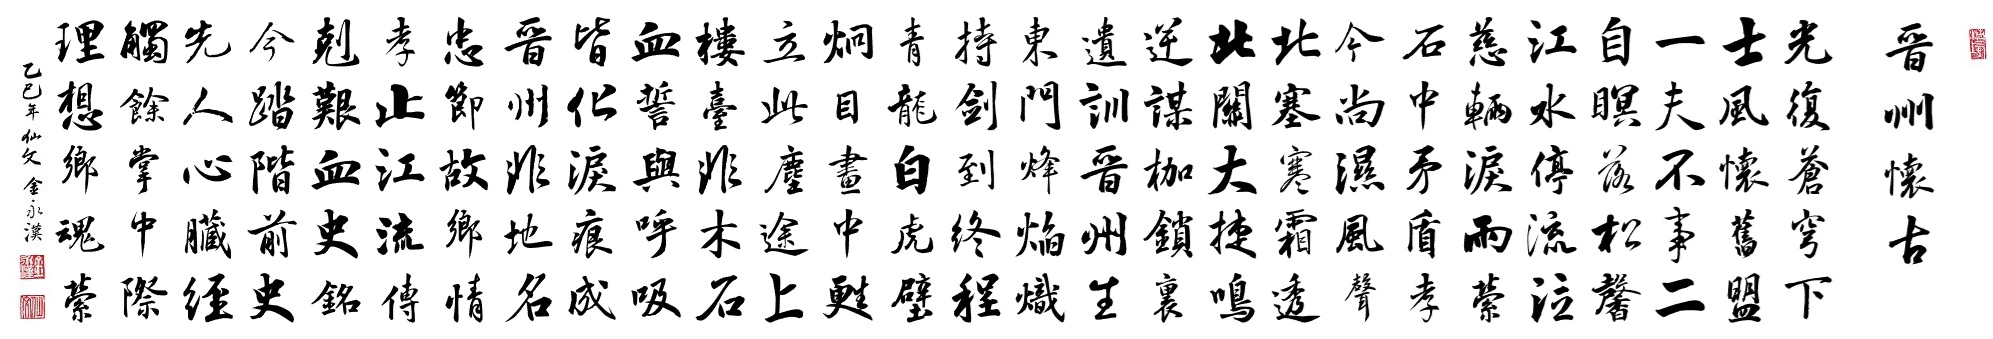 晉州懷古
光復蒼穹下
士風懷舊盟
一夫不事二
自瞑落松馨
江水停流泣
慈輛淚雨縈
石中矛盾孝
今尚濕風聲
北塞寒霜透
北關大捷鳴
逆謀枷鎖裏
遺訓晉州生
東門烽焰熾
持劍到終程
青龍白虎壁
炯目畫中甦
立此塵途上
樓臺非木石
血誓與呼吸
皆化淚痕成
晉州非地名
忠節故鄉情
孝止江流傳
剋艱血史銘
今踏階前史
先人心臟經
觸餘掌中際
理想鄉魂縈
乙巳年 仙文 金永漢